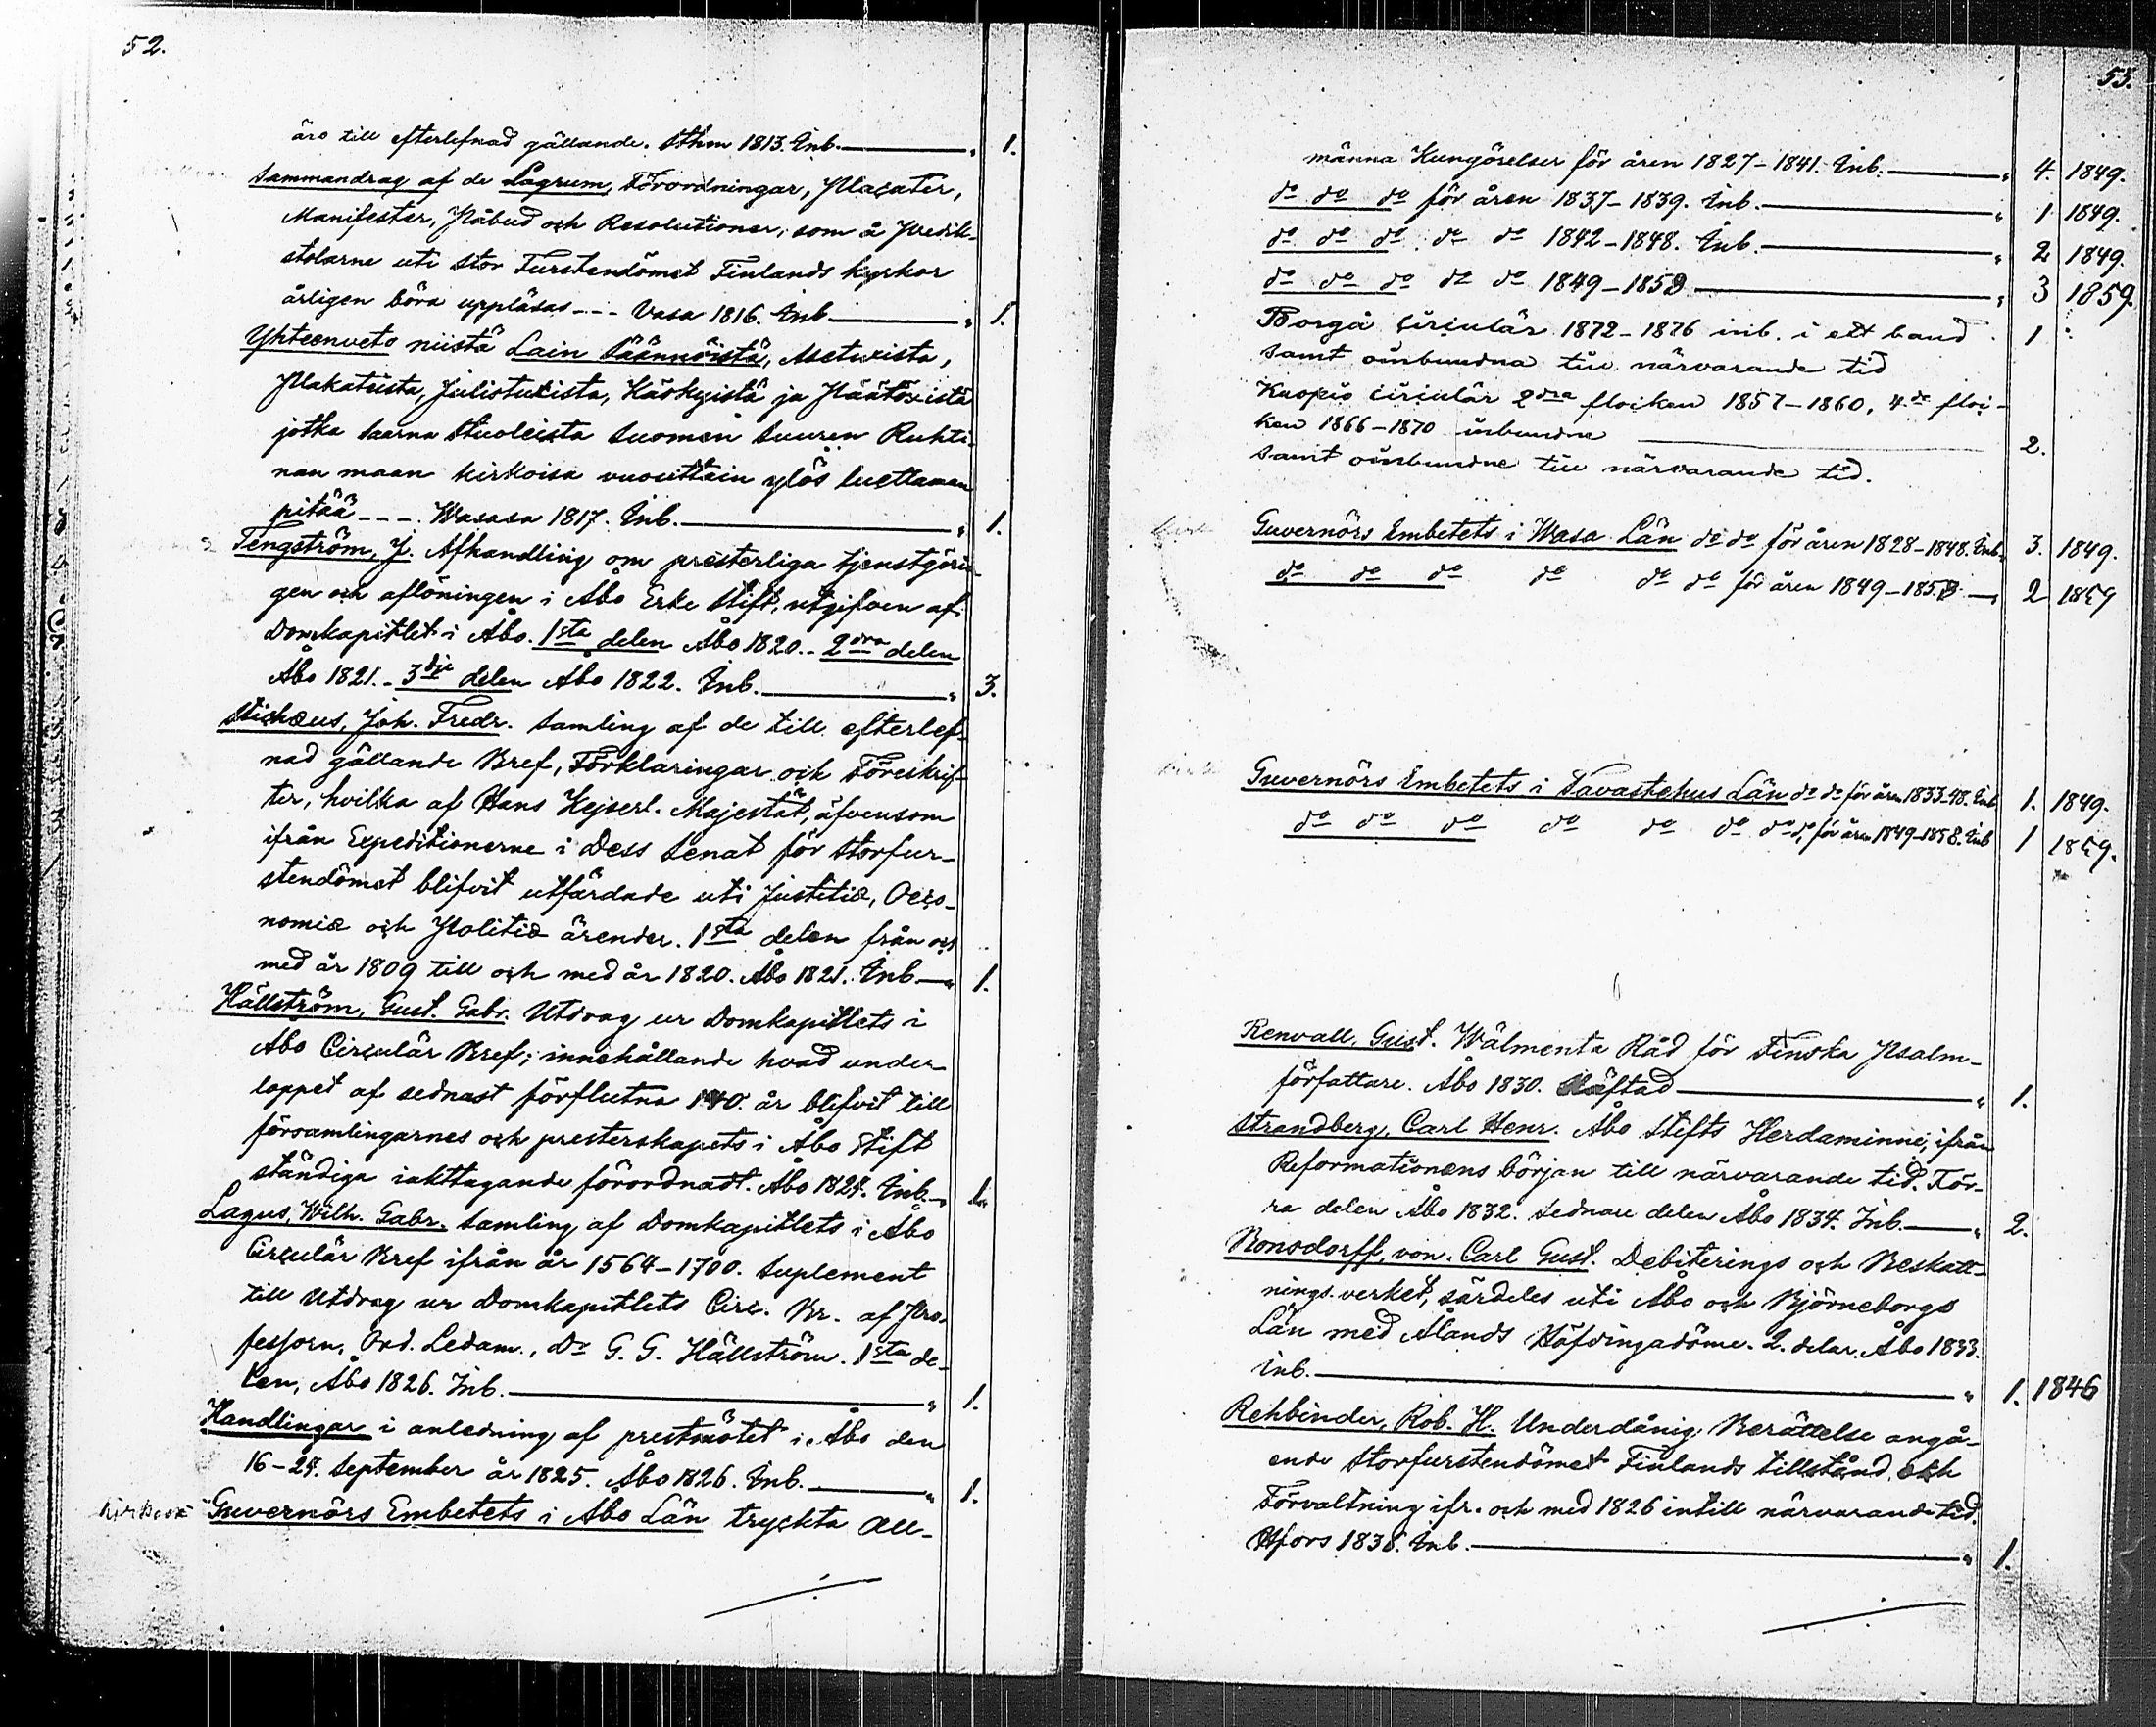 52.
äro till efterlefnad gällande. Sthm 1813. Inb. " 1.
Sammandrag af de Lagrum, Förordningar, Placater,
Manifester, Påbud och Resolutioner, som å Predik-
stolarne uti Stor Furstendömet Finlands kyrkor
årligen böra uppläsas --- Vasa 1816. Inb. " 1.
Yhteenveto niistä Lain Säännöistä, Asetuxista,
Plakateista, Julistuxista, Käskyistä ja Päätöxistä
jotka Saarna Stuoleista Suomen Suuren Ruhti-
nan maan kirkoisa vuosittain ylös luettaman
pitää --- Wasasa 1817. Inb. " 1.
Tengström, J. Afhandling om presterliga tjenstgörin-
gen och aflöningen i Åbo Erke Stift, utgifven af
Domkapitlet i Åbo. 1sta delen Åbo 1820. - 2dra delen
Åbo 1821. - 3dje delen Åbo 1822. Inb. " 3.
Stichæus, Joh. Fredr. Samling af de till efterlef-
nad gällande Bref, Förklaringar och Föreskrif-
ter, hvilka af Hans Kejserl. Majestät, äfvensom
ifrån Expeditionerne i Dess Senat för Storfur-
stendömet blifvit utfärdade uti Justitiæ, Oeco-
nomiæ och Politiæ ärender. 1sta delen från och
med år 1809 till och med år 1820. Åbo 1821. Inb. " 1.
Hällström, Gust. Gabr. Utdrag ur Domkapitlets i
Åbo Circulär Bref; innehållande hvad under
loppet af sednast förflutna 140. år blifvit till
församlingarnes och presterskapets i Åbo Stift
ständiga iakttagande förordnadt. Åbo 1824. Inb. "
Lagus, Wilh. Gabr. Samling af Domkapitlets i Åbo
Circulär Bref ifrån år 1564-1700. Suplement
till Utdrag ur Domkapitlets Circ. Br. af Pro-
fessorn, Ord. Ledam., Dr G. G. Hällström. 1sta de-
len, Åbo 1826. Inb. " 1.
Handlingar i anledning af prestmötet i Åbo den
16-24. September år 1825. Åbo 1826. Inb. " 1.
Guvernörs Embetets i Åbo Län tryckta All-
53.
männa Kungörelser för åren 1827-1841. Inb. " 4. 1849.
do do do för åren 1837-1839. Inb. " 1 1849.
do do do do do 1842-1848. Inb. " 2 1849.
do do do do do 1849-1858 " 3 1859
Borgå Circulär 1872-1876 inb. i ett band 1
samt oinbundna till närvarande tid
Kuopio circulär 2dra flocken 1857-1860, 4.de floc-
ken 1866-1870 inbundne 2.
samt oinbundne till närvarande tid.
Guvernörs Embetets i Wasa Län do do för åren 1828-1848. Inb. 3. 1849.
do do do do do do för åren 1849-1858 " 2 1859
Guvernörs Embetets i Tavastehus Län do do för åren 1833-48. Inb 1. 1849.
do do do do do do do do för åren 1849-1858. Inb 1 1859.
Renvall, Gust. Wälmenta Råd för Finska Psalm-
författare. Åbo 1830. Häftad " 1.
Strandberg, Carl Henr. Åbo Stifts Herdaminne, ifrån
Reformationens början till närvarande tid. För-
ra delen Åbo 1832. Sednare delen Åbo 1834. Inb. " 2.
Bonsdorff, von. Carl Gust. Debiterings och Beskatt-
nings verket, särdeles uti Åbo och Björneborgs
Län med Ålands Höfdingadöme. 2. delar. Åbo 1833.
inb. " 1. 1846
Rehbinder, Rob. H. Underdånig Berättelse angå-
ende Storfurstendömet Finlands tillstånd och
Förvaltning ifr. och med 1826 intill närvarande tid.
Hfors 1836. Inb. " 1.